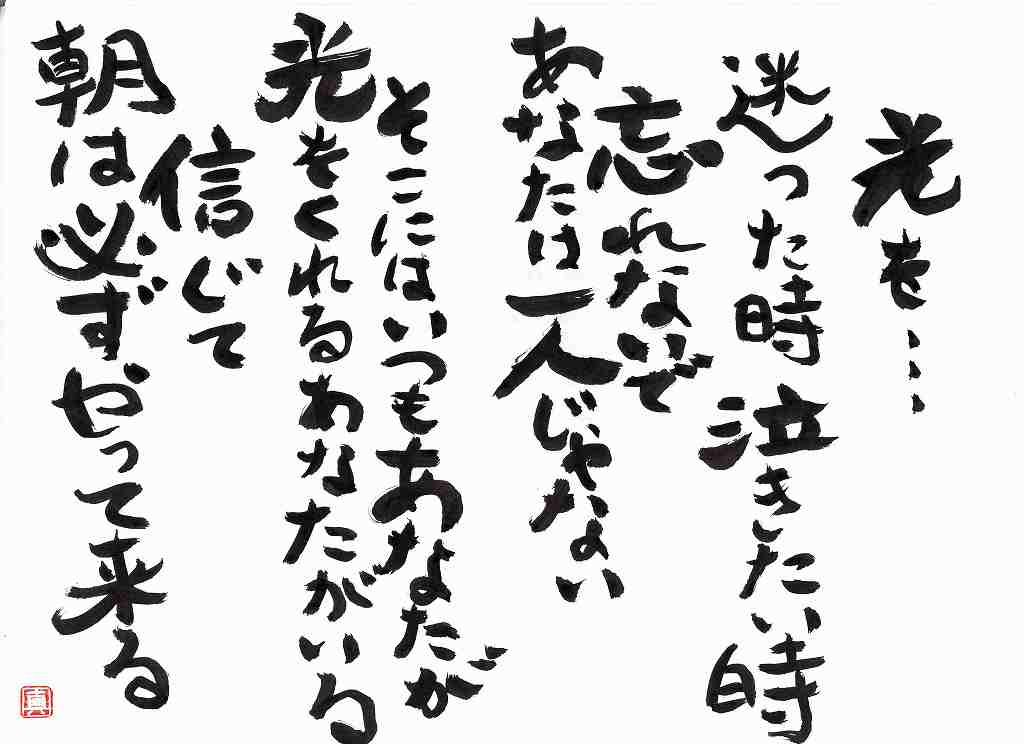 光を…
迷った時 泣きたい時
忘れないで
あなたは一人じゃない
そこにはいつもあなたが
光をくれるあなたがいる
信じて
朝は必ずやって来る
真